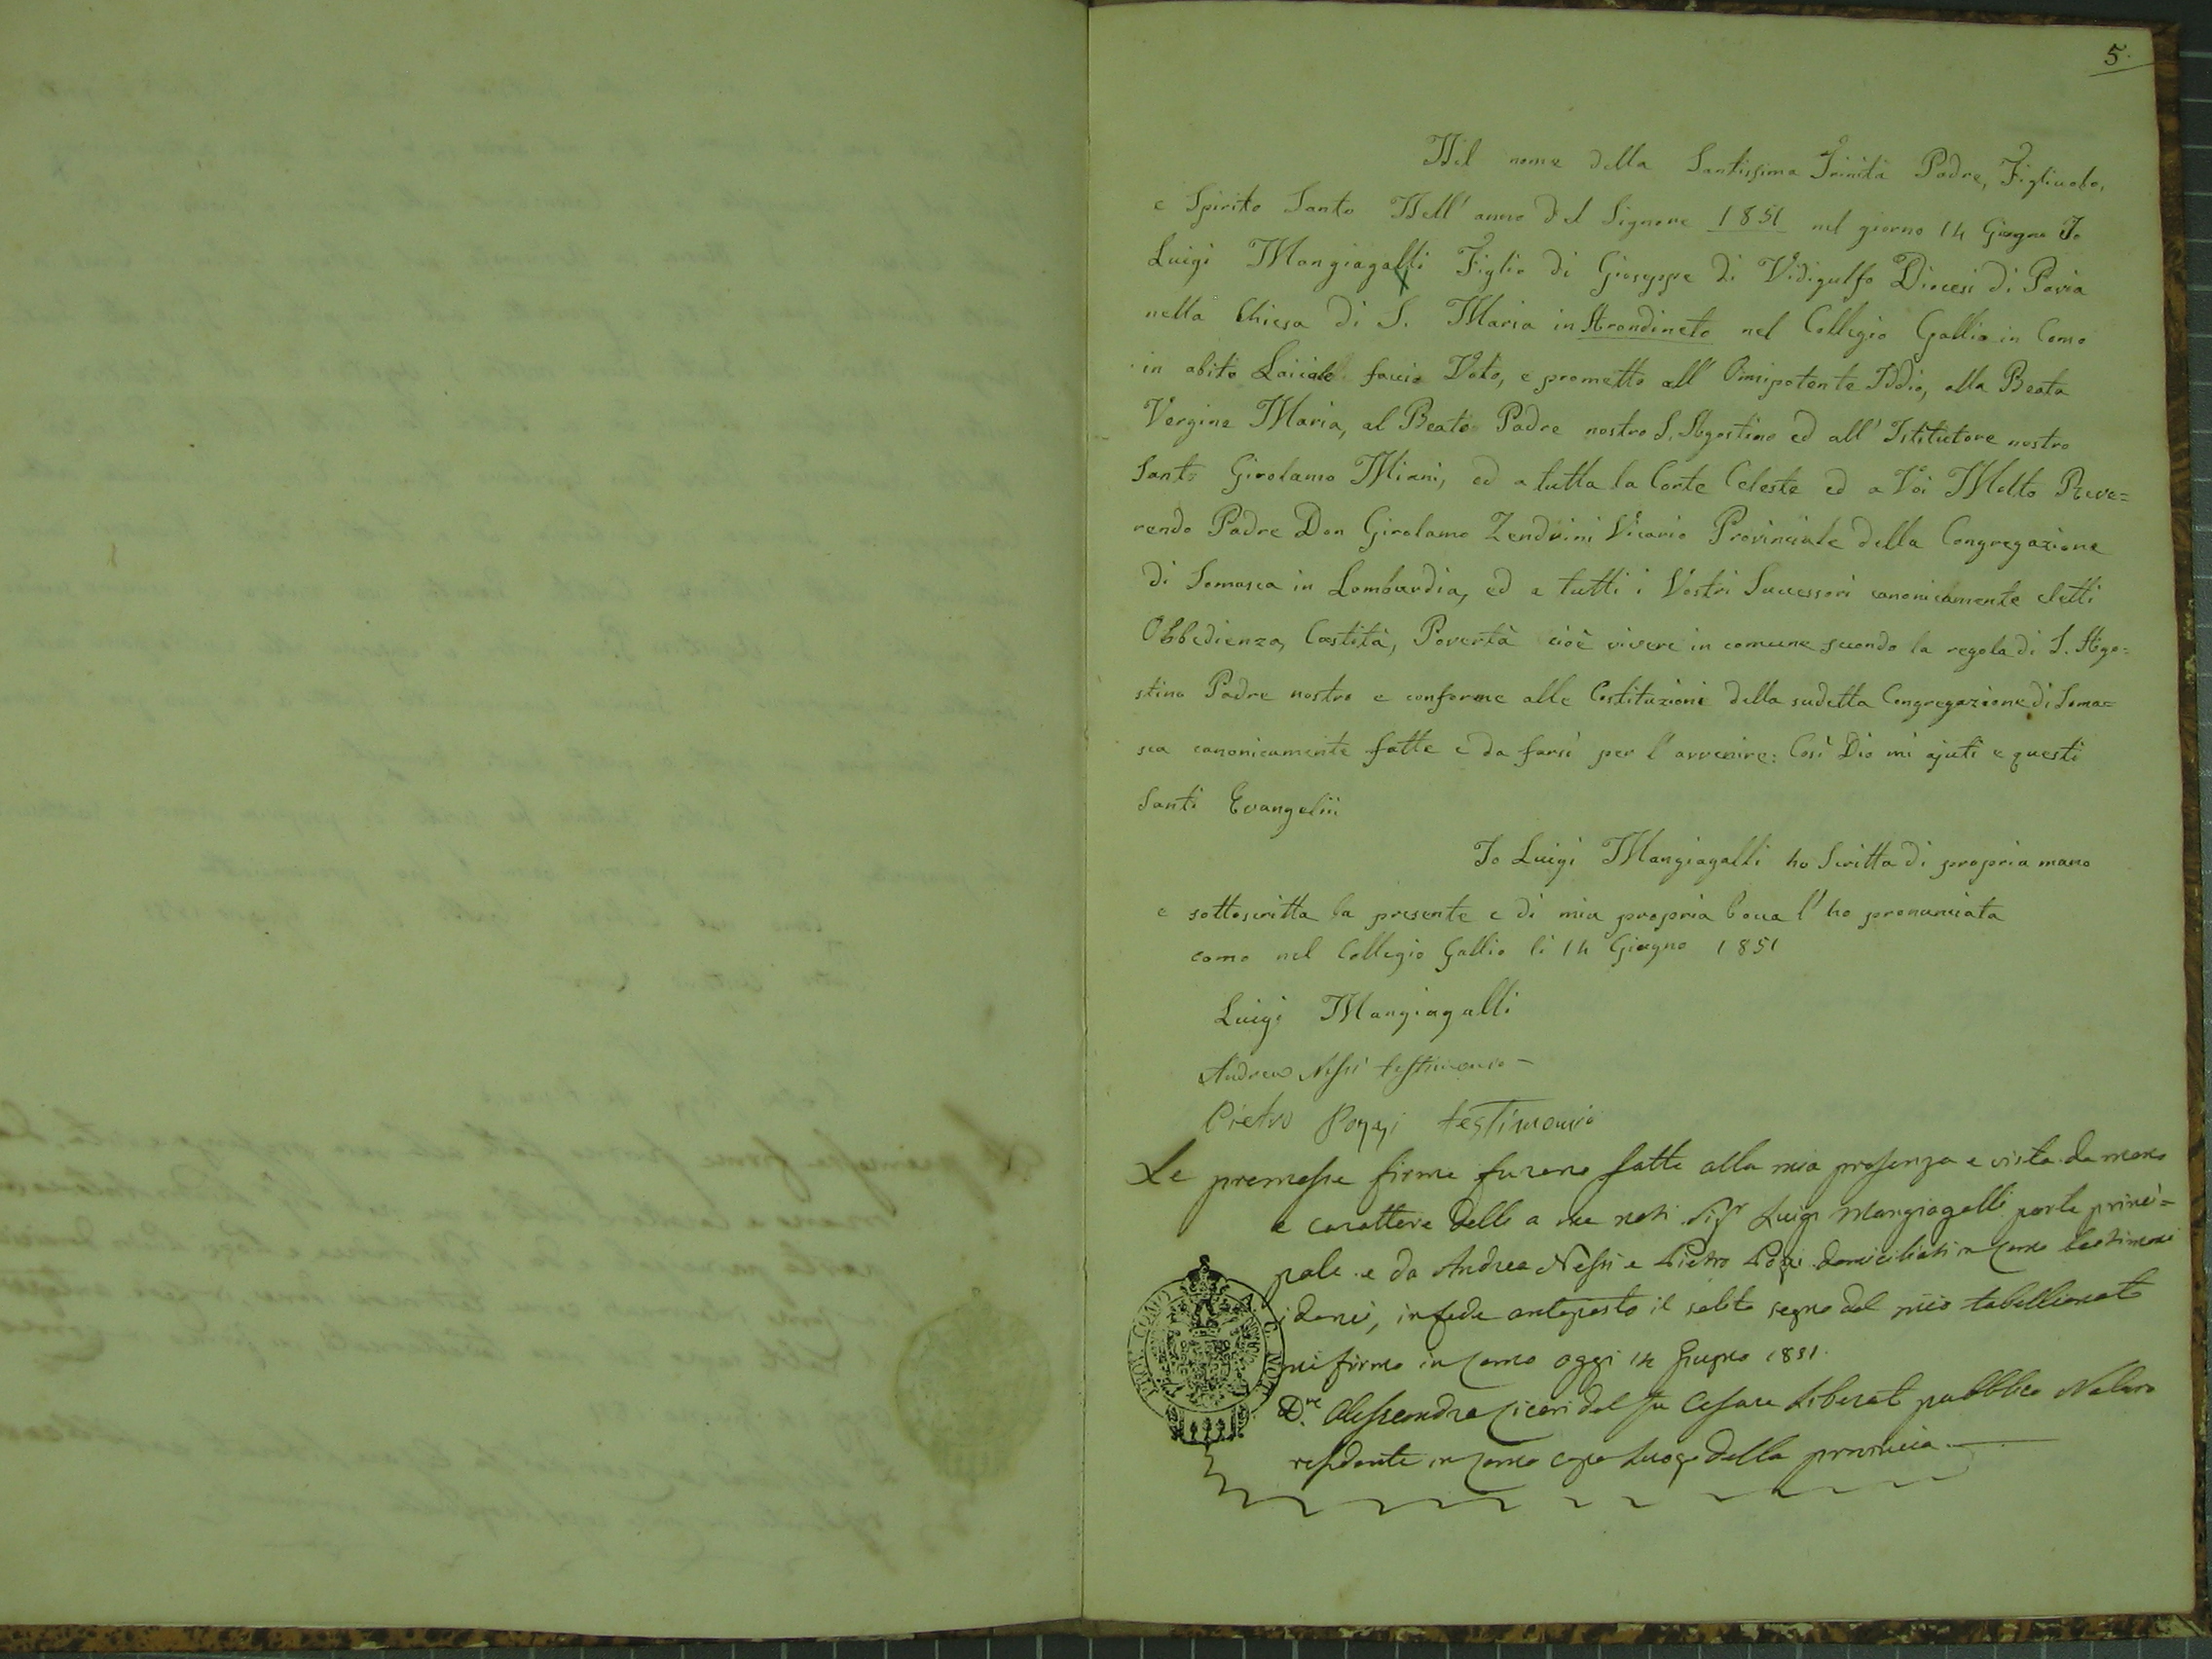 5.
Nel nome della Santissima Trinità Padre, Figliuolo,
e Spirito Santo Nell' anno del Signore 1851 nel giorno 14 Giugno Io
Luigi Mangiagalli Figlio di Giuseppe di Vidigulfo Diocesi di Pavia
nella Chiesa di S. Maria in Arondineto nel Collegio Gallio in Como
in abito Laicale faccio Voto, e prometto all' Onnipotente Iddio, alla Beata
Vergine Maria, al Beato Padre nostro S. Agostino ed all' Istitutore nostro
Santo Girolamo Miani, ed a tutta la Corte Celeste ed a Voi Molto Reve=
rendo Padre Don Girolamo Zendrini Vicario Provinciale della Congregazione
di Somasca in Lombardia, ed a tutti i Vostri Successori canonicamente eletti
Obbedienza, Castità, Povertà cioè vivere in comune secondo la regola di S. Ago=
stino Padre nostro e conforme alle Costituzioni della sudetta Congregazione di Soma=
sca canonicamente fatte e da farsi per l' avvenire: Così Dio mi ajuti e questi
Santi Evangelii
Io Luigi Mangiagalli ho Scritta di propria mano
e sottoscritta la presente e di mia propria bocca l' ho pronunciata
como nel Collegio Gallio li 14 Giugno 1851
Luigi Mangiagalli
Andrea Nessi testimonio
Pietro Poggi testimonio
Le premesse firme furono fatte alla mia presenza e vista da mano
e carattere delli a me noti Sigr Luigi Mangiagalli parte princi=
pale e da Andrea Nessi e Pietro Pozzi domiciliati in Como testimoni
idonei, in fede anteposto il solito segno del mio tabellionato
mi firmo in Como oggi 14 Giugno 1851.
D.re Alessandro Ciceri del fu Cesare Liberat pubblico Notaro
residente in Como capo luogo della provincia